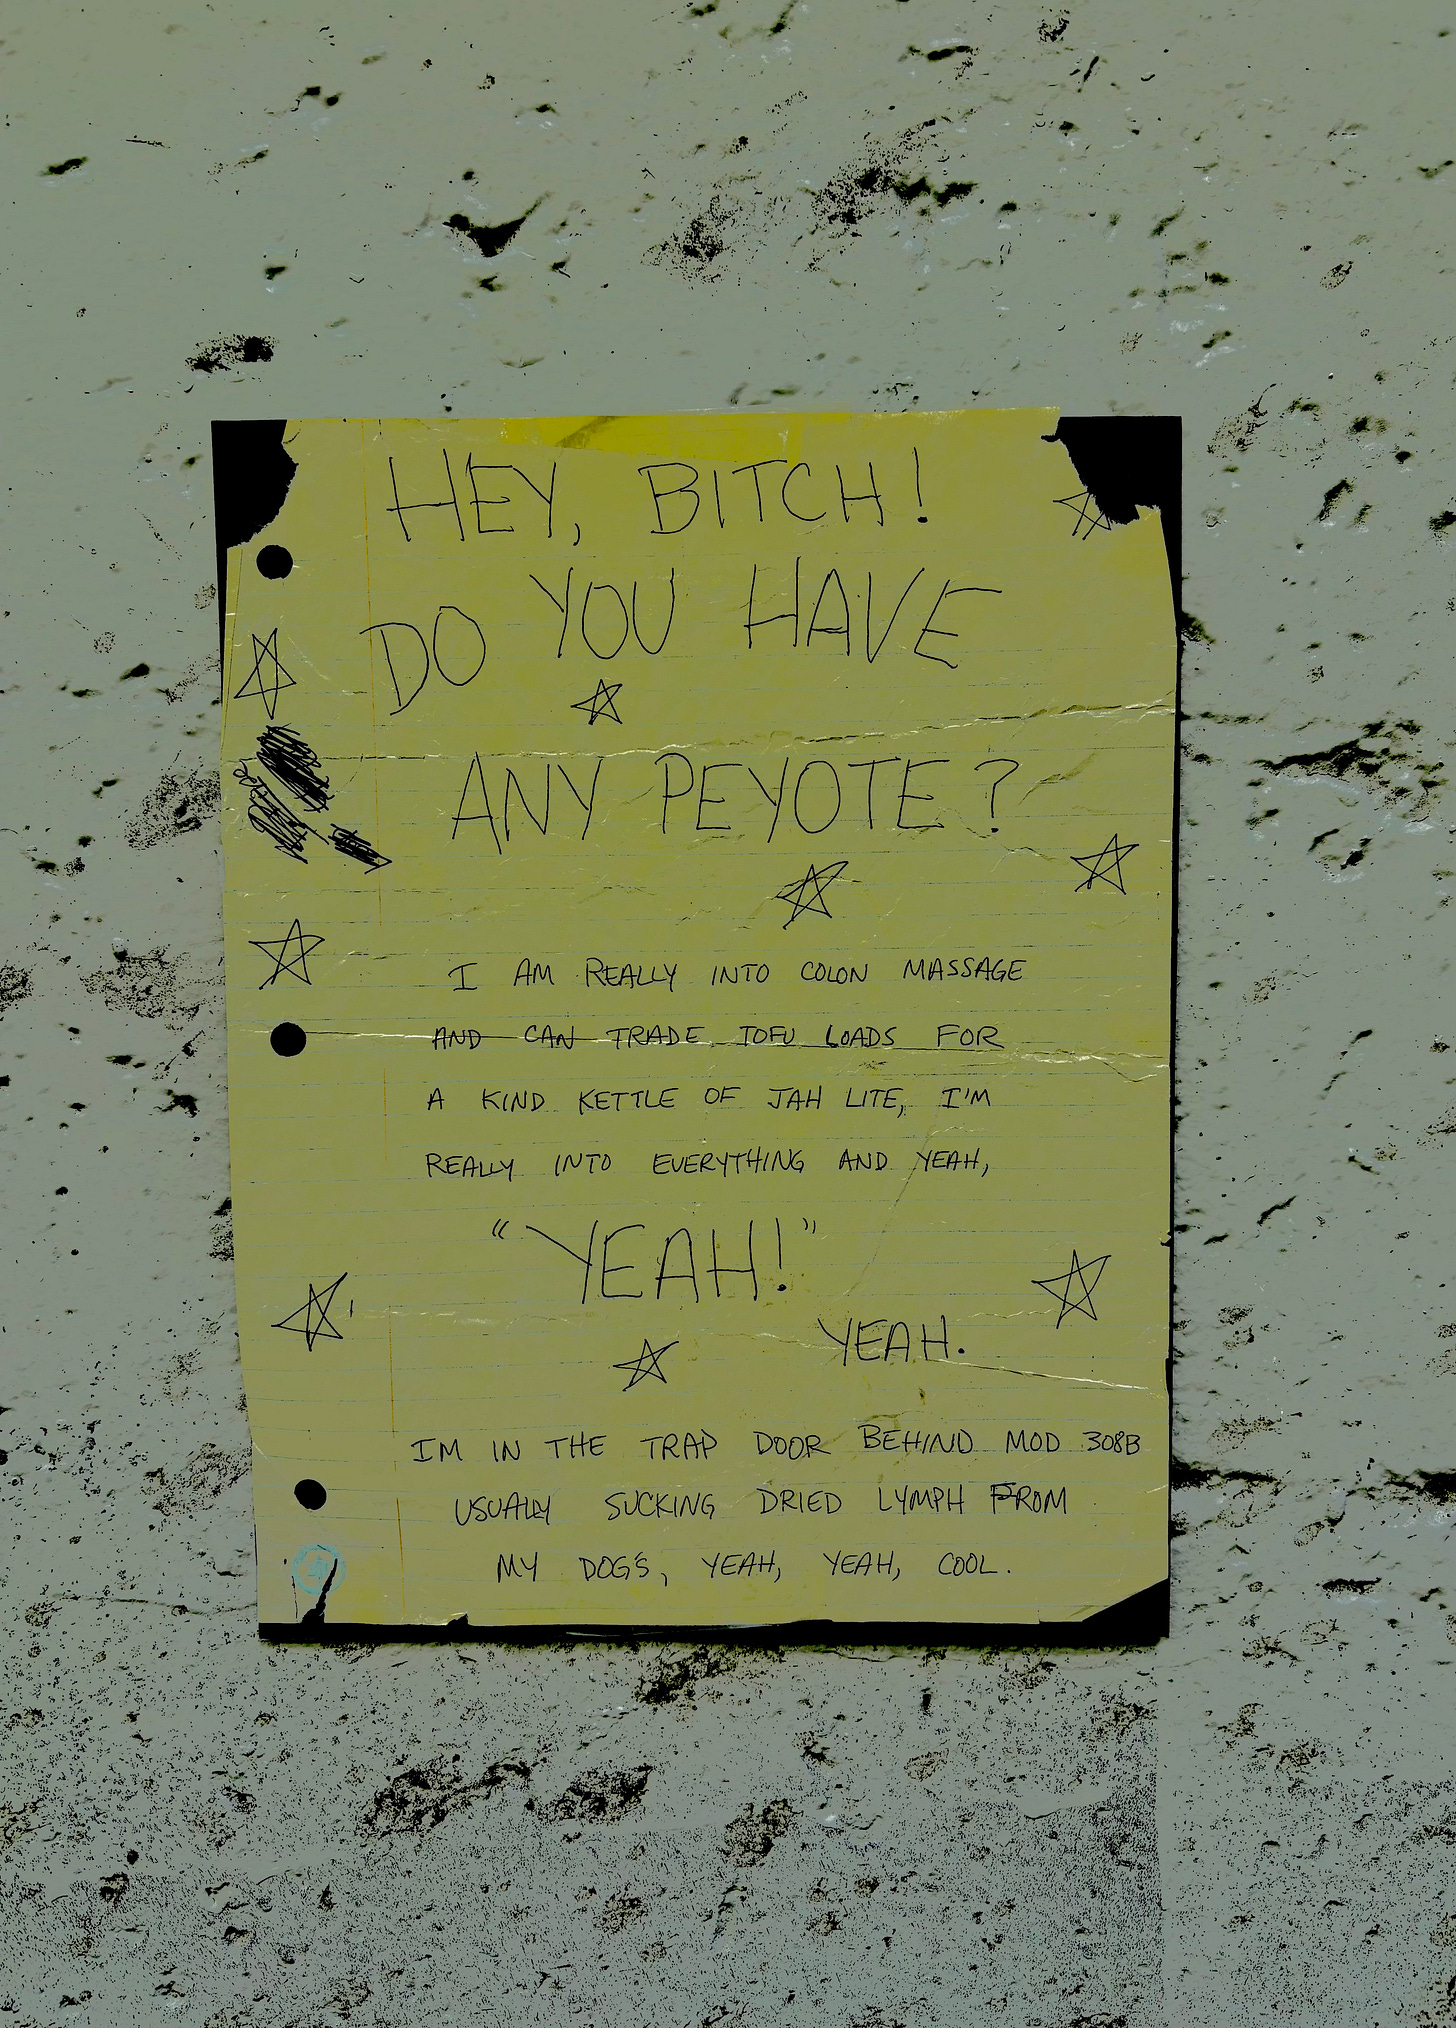 HEY, BITCH!
DO YOU HAVE
ANY PEYOTE?
I AM REALLY INTO COLON MASSAGE
AND CAN TRADE TOFU LOADS FOR
A KIND KETTLE OF JAH LITE, I'M
REALLY INTO EVERYTHING AND YEAH,
"YEAH!"
YEAH.
IM IN THE TRAP DOOR BEHIND MOD 308B
USUALLY SUCKING DRIED LYMPH FROM
MY DOG'S, YEAH, YEAH, COOL.